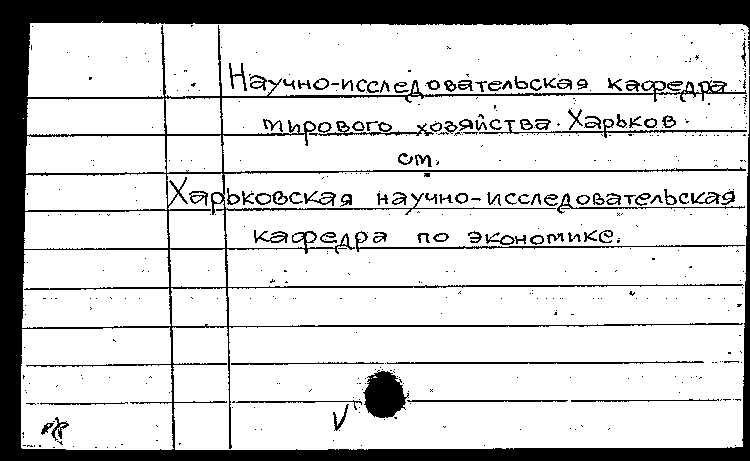 Научно-исследовательская кафедра
мирового хозяйства. Харьков.
см.
Харьковская научно-исследовательская
кафедра по экономике.